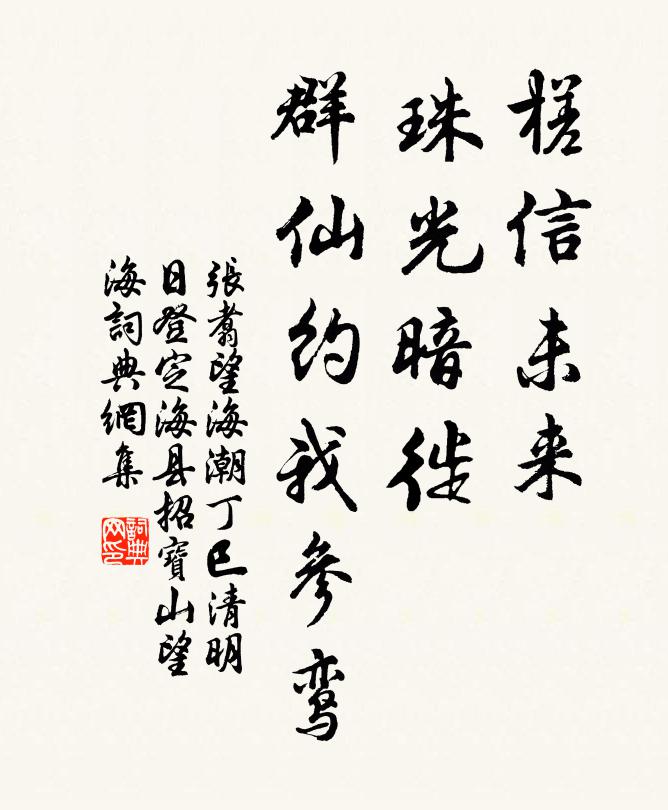 槎信未来
珠光暗徙
群仙约我参鸾
張翥望海潮丁巳清明
日登定海县招寶山望
海詞典網集
詞典网印